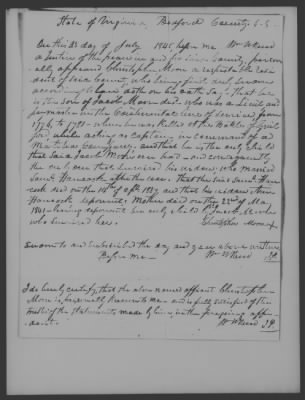 State of Virginia, Bedford County S.S.
On this 31 day of July 1845 before me Wm W Reed
a Justice of the peace in and for said County, person
ally appeared Christopher Moon a respectable resi
dent of said County, who being first duly sworn
according to law doth on his oath say, that he
is the son of Jacob Moon decd. who was a Lieut and
paymaster in the Continental line of service from
1776, to 1781 when he was killed at the Battle of Guil
ford while acting as Captain in command of a
and that he is the only child
that said Jacob Moon ever had and consequently
the only one that survived his widow, who married
Saml Hancock after the war. that the said Saml Han
cock died on the 10th of 1837, and that his widow Ann
Hancock deponents Mother died on the 22d of May
1841 leaving deponent the only child of Jacob Moon
who survived her.
Christopher Moon
Sworn to and subscribed the day and year above written
Before me Wm W Reed J.P.
I do hereby certify, that the above named affiant Christopher
Moon is personally known to me and is fully satisfied of the
truth of the statements made by him in the foregoing affi-
davit. Wm W Reed J.P.